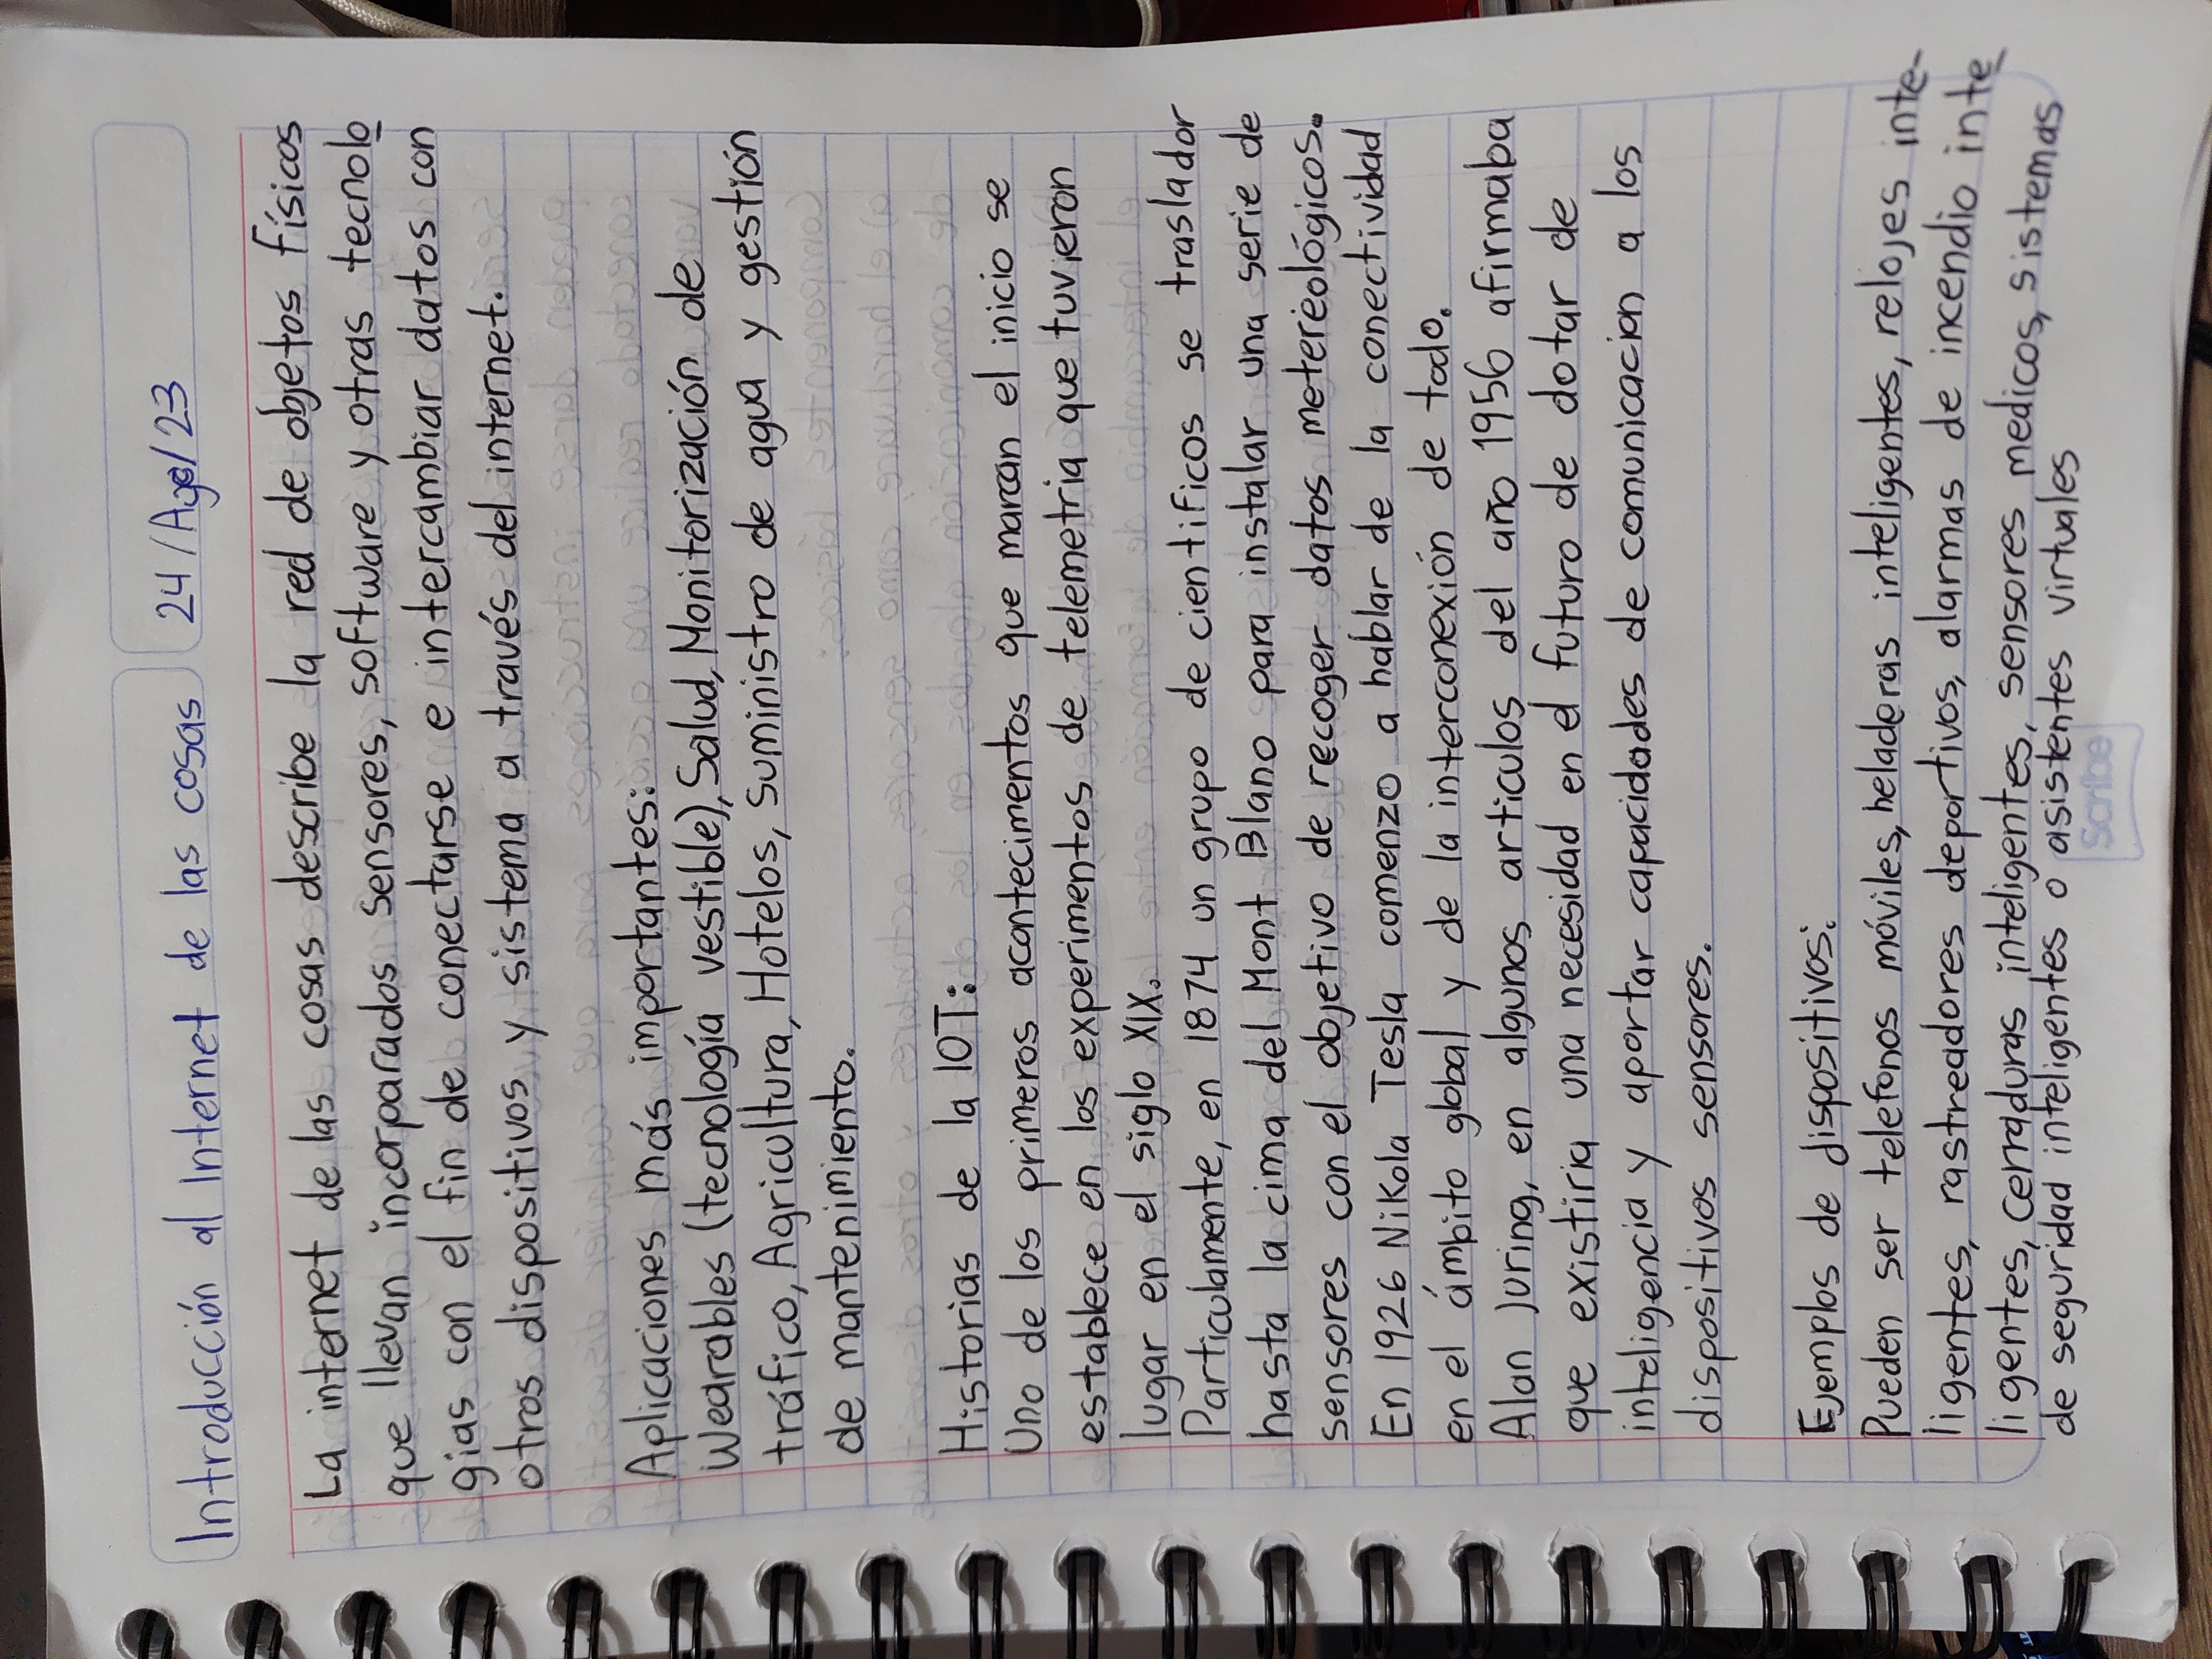 Introducción al Internet de las cosas 24/Ago/23
La internet de las cosas describe la red de objetos físicos
que llevan incorparados sensores, software y otras tecnolo
gias con el fin de conectarse e intercambiar datos con
otros dispositivos y sistema a través del internet.
Aplicaciones más importantes:
Wearables (tecnología vestible), Salud, Monitorización de
tráfico, Agricultura, Hotelos, Suministro de agua y gestión
de mantenimiento.
Historias de la IOT:
Uno de los primeros acontecimentos que marcan el inicio se
establece en los experimentos de telemetria que tuvieron
lugar en el siglo XIX.
Particulamente, en 1874 un grupo de cientificos se traslador
hasta la cima del Mont Blano para instalar una serie de
sensores con el objetivo de recoger datos metereológicos.
En 1926 Nikola Tesla comenzo a hablar de la conectividad
en el ámbito global y de la interconexión de todo.
Alan Juring, en algunos articulos del año 1956 afirmaba
que existiria una necesidad en el futuro de dotar de
inteligencia y aportar capacidades de comunicacion a los
dispositivos sensores.
Ejemplos de dispositivos:
Pueden ser telefonos móviles, heladeras inteligentes, relojes inte-
ligentes, rastreadores deportivos, alarmas de incendio inte
ligentes, cerraduras inteligentes, sensores medicos, sistemas
de seguridad inteligentes o asistentes virtuales
scribe